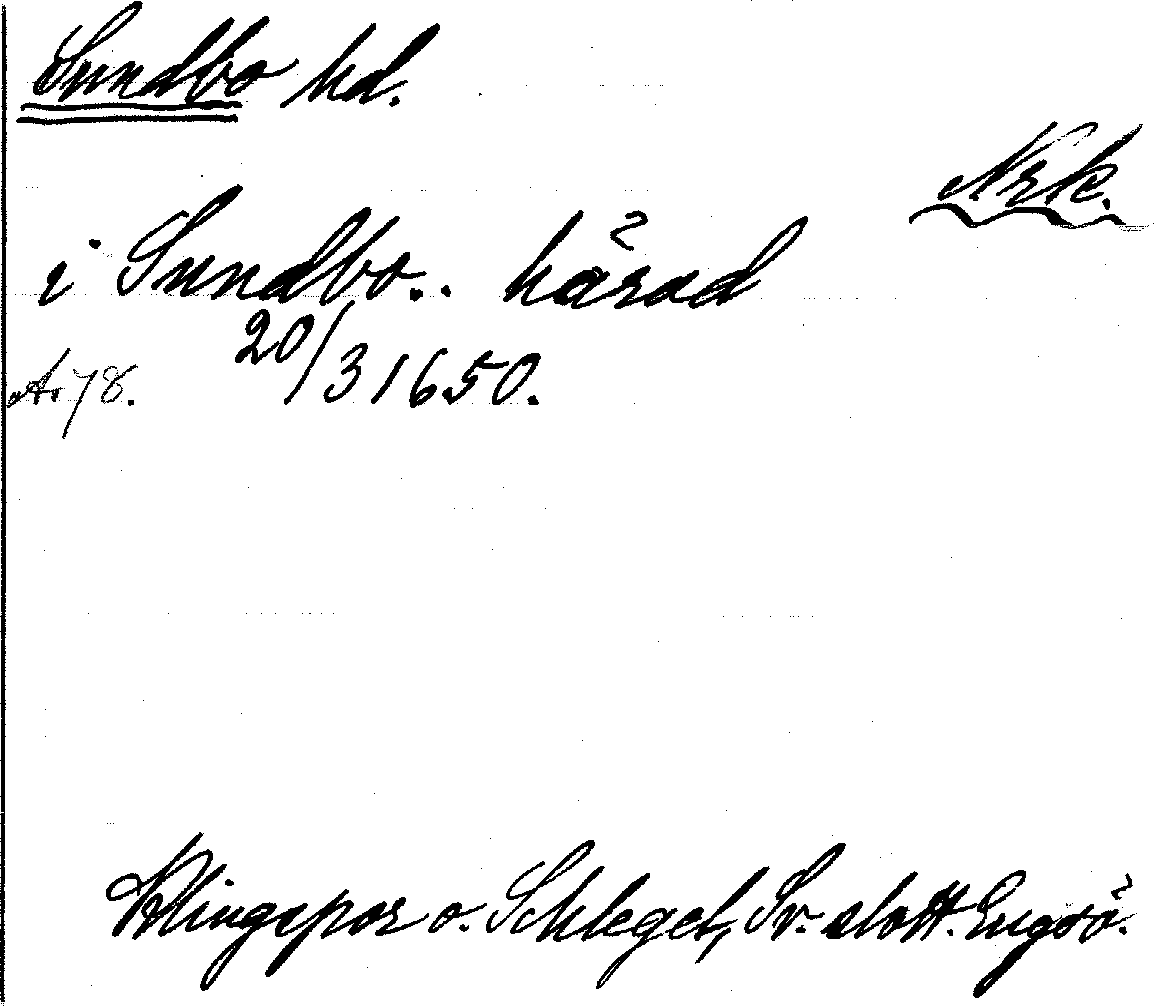 Sundbo hd.
Nrk.
i Sundbo.. härad
20/3 1650.
A. 78.
Klingspor o. Schlegel, Sv. slott. Engsö.